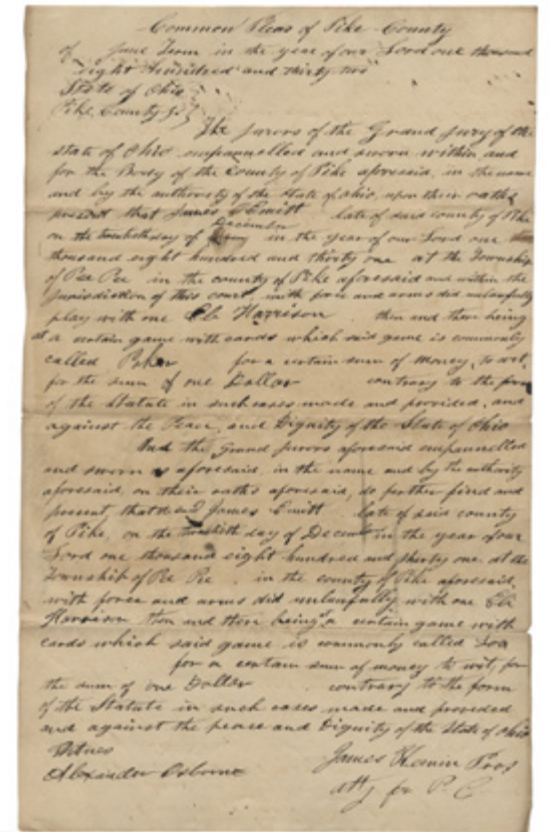 Common Pleas of Pike County
of June Term in the year of our Lord one thousand
eight hundred and thirty two
State of Ohio
Pike County Ss
The jurors of the Grand jury of the
state of Ohio empannelled and sworn within and
for the Body of the County of Pike aforesaid, in the name
and by the authority of the State of Ohio, upon their oaths
present that James Emitt late of said county of Pike
December
on the twentieth day of in the year of our Lord one
thousand eight hundred and thirty one at the Township
of Pee Pee in the county of Pike aforesaid and within the
jurisdiction of this court, with force and arms did unlawfully
play with one Eli Harrison then and there being
at a certain game with cards which said game is commonly
called Poker for a certain sum of money, to wit,
for the sum of one Dollar contrary to the form
of the Statute in such cases made and provided, and
against the Peace and Dignity of the State of Ohio
And the Grand jurors aforesaid empannelled
and sworn as aforesaid, in the name and by the authority
aforesaid, on their oaths aforesaid, do further find and
present, that James Emitt late of said county
of Pike, on the twentieth day of Decem in the year of our
Lord one thousand eight hundred and thirty one at the
Township of Pee Pee in the county of Pike aforesaid,
with force and arms did unlawfully with one Eli
Harrison then and there being a certain game with
cards which said game is commonly called Loo
for a certain sum of money to wit, for
the sum of one Dollar contrary to the form
of the Statute in such cases made and provided
and against the peace and Dignity of the State of Ohio
Witness
Alexander Osborne
James Pros
atty for P. C